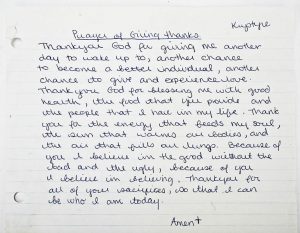 Prayer of Giving thanks
Thankyou God for giving me another
day to wake up to, another chance
to become a better individual, another
chance to give and experience love.
Thank you God for blessing me with good
health, the food that you provide and
the people that I have in my life. Thank
you for the energy that feeds my soul,
the sun that warms our bodies and
the air that fills our lungs. Because of
you I believe in the good without the
bad and the ugly, because of you
I believe in believing. Thankyou for
all of your sacrifices, so that I can
be who I am today.
Amen